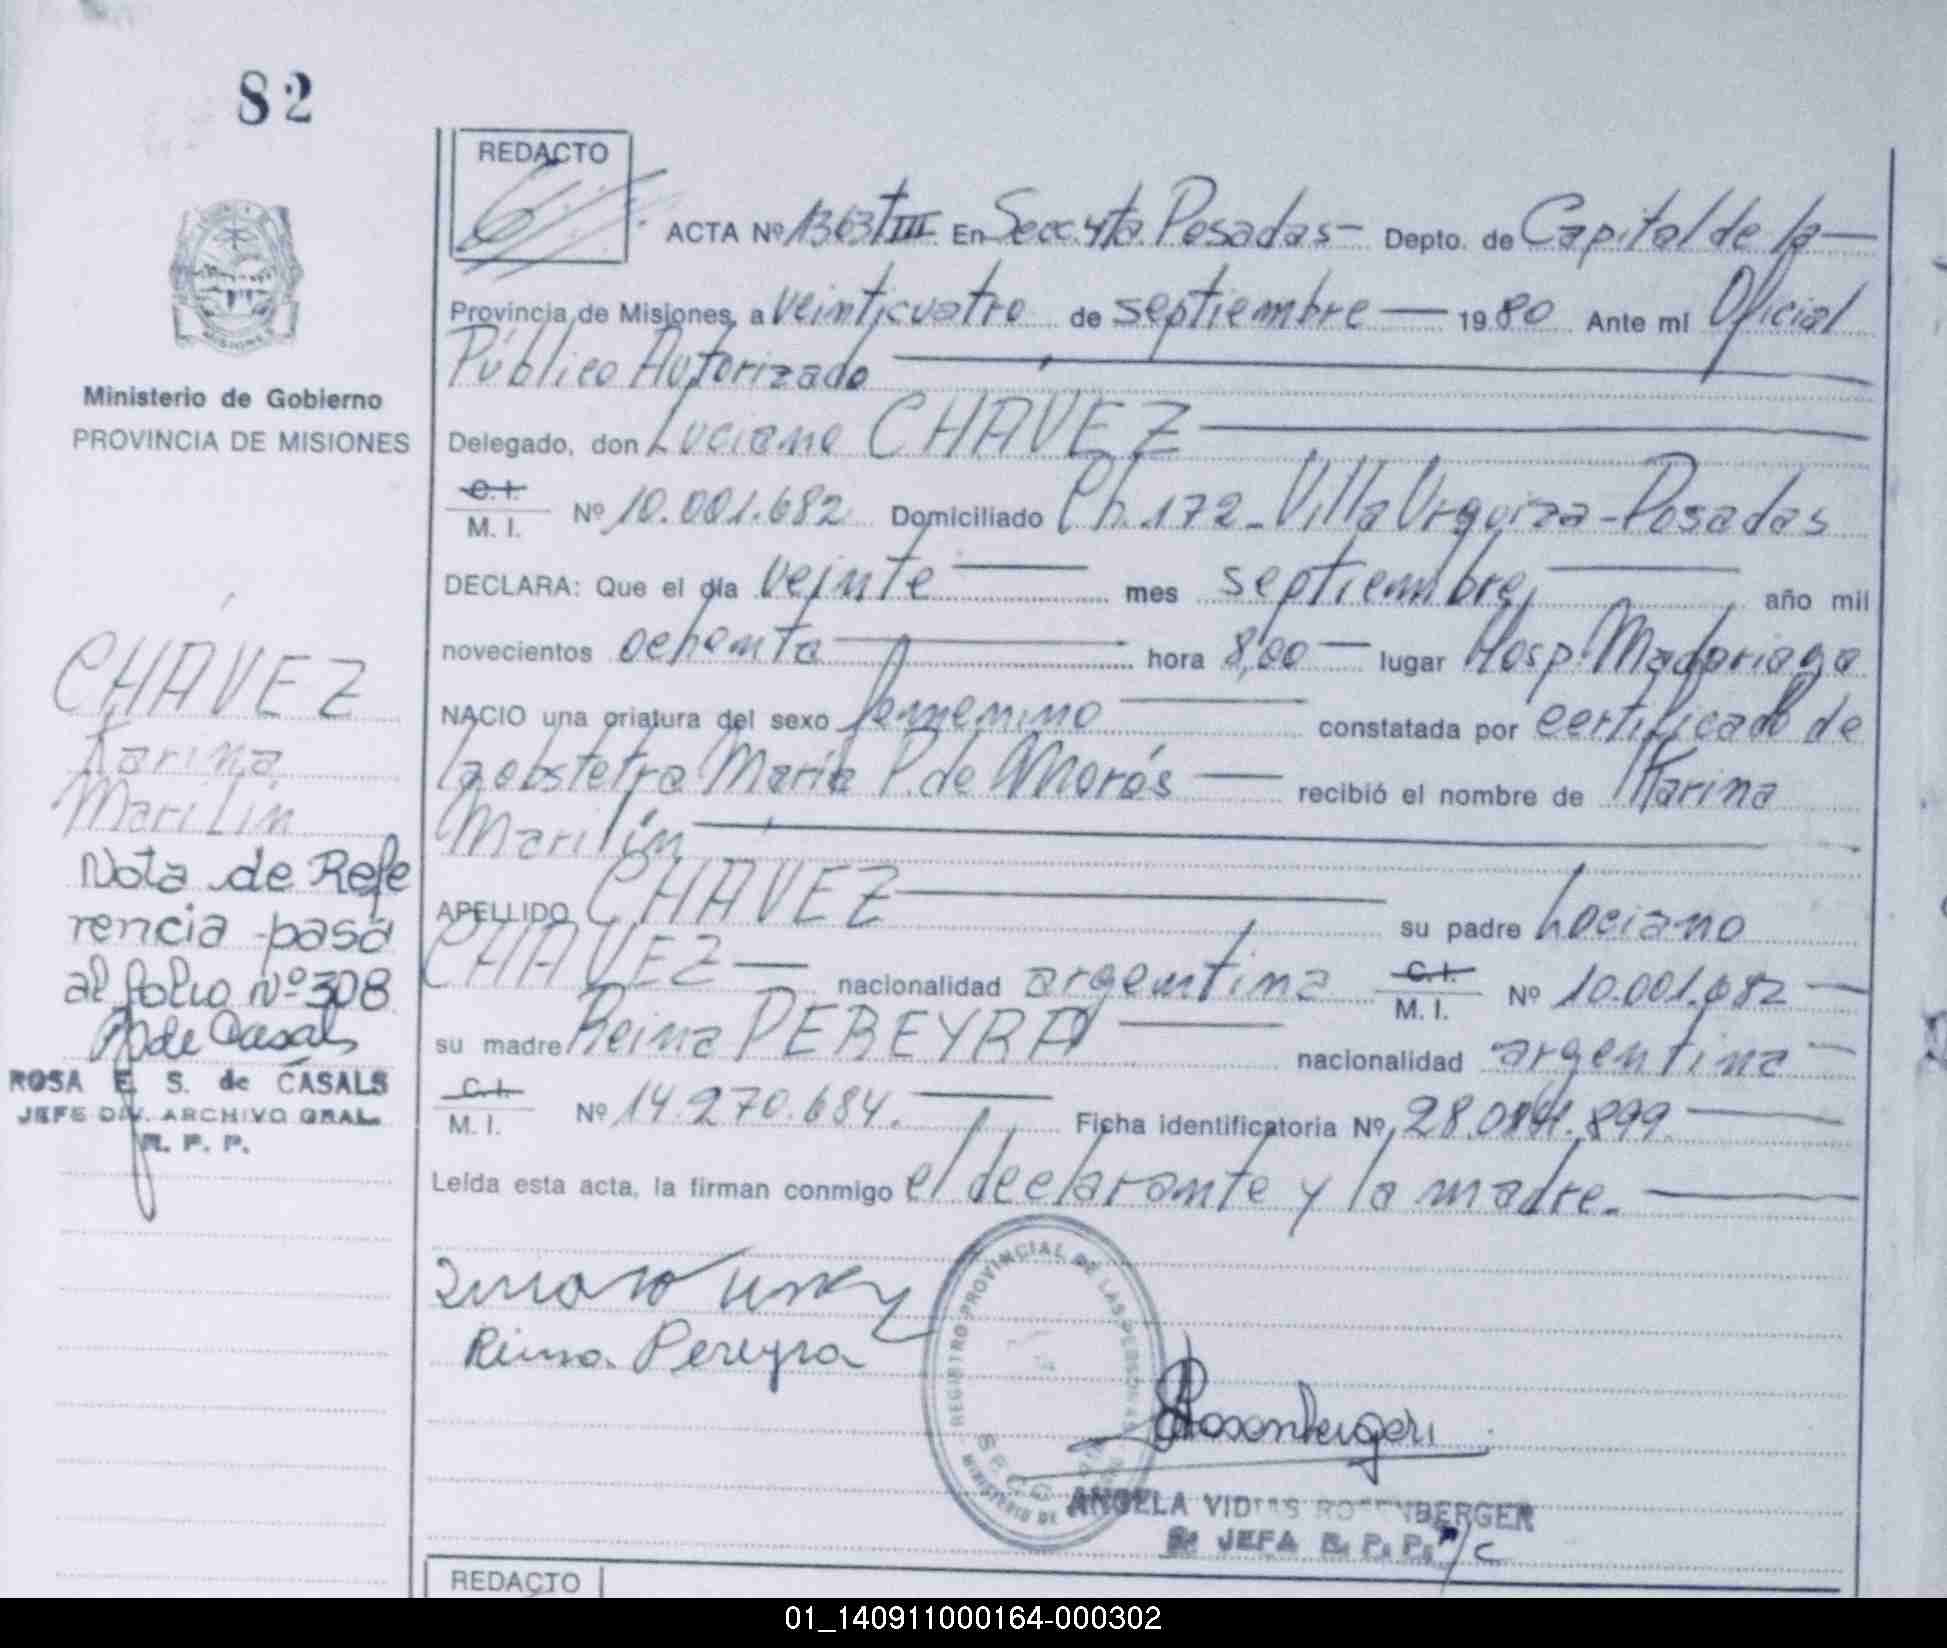 82
REDACTO
ACTA Nº 1363 TIII En Secc. 4ta. Posadas - Depto. de Capital de la
Provincia de Misiones, a veinticuatro de septiembre 1980 Ante mí Oficial
Público Autorizado
Delegado, don Luciano CHÁVEZ
C. I.
M. I. Nº 10.001.682 Domiciliado Ch. 172 - Villa Urquiza - Posadas
DECLARA: Que el día veinte mes septiembre, año mil
novecientos ochenta hora 8,00 lugar Hosp. Madariaga
NACIO una criatura del sexo femenino constatada por certificado de
la obstetra María P. de Amorós recibió el nombre de Karina
Marilin
APELLIDO CHÁVEZ su padre Luciano
CHAVEZ nacionalidad argentina C. I. M. I. Nº 10.001.682
su madre Reina PEREYRA nacionalidad argentina
C. I.
M. I. Nº 14.270.684. Ficha identificatoria Nº 899
Leída esta acta, la firman conmigo el declarante y la madre.
Reina Pereyra
REGISTRO PROVINCIAL DE LAS PERSONAS
MINISTERIO DE
ANGELA VIDMAS ROSENBERGER
JEFA R. P. P. A/C
REDACTO
MISIONES
Ministerio de Gobierno
PROVINCIA DE MISIONES
CHÁVEZ
Karina
Marilin
Nota de Refe
rencia pasa
al folio Nº 308
de Casals
ROSA E. S. de CASALS
JEFE DIV. ARCHIVO GRAL.
R. P. P.
01_140911000164-000302